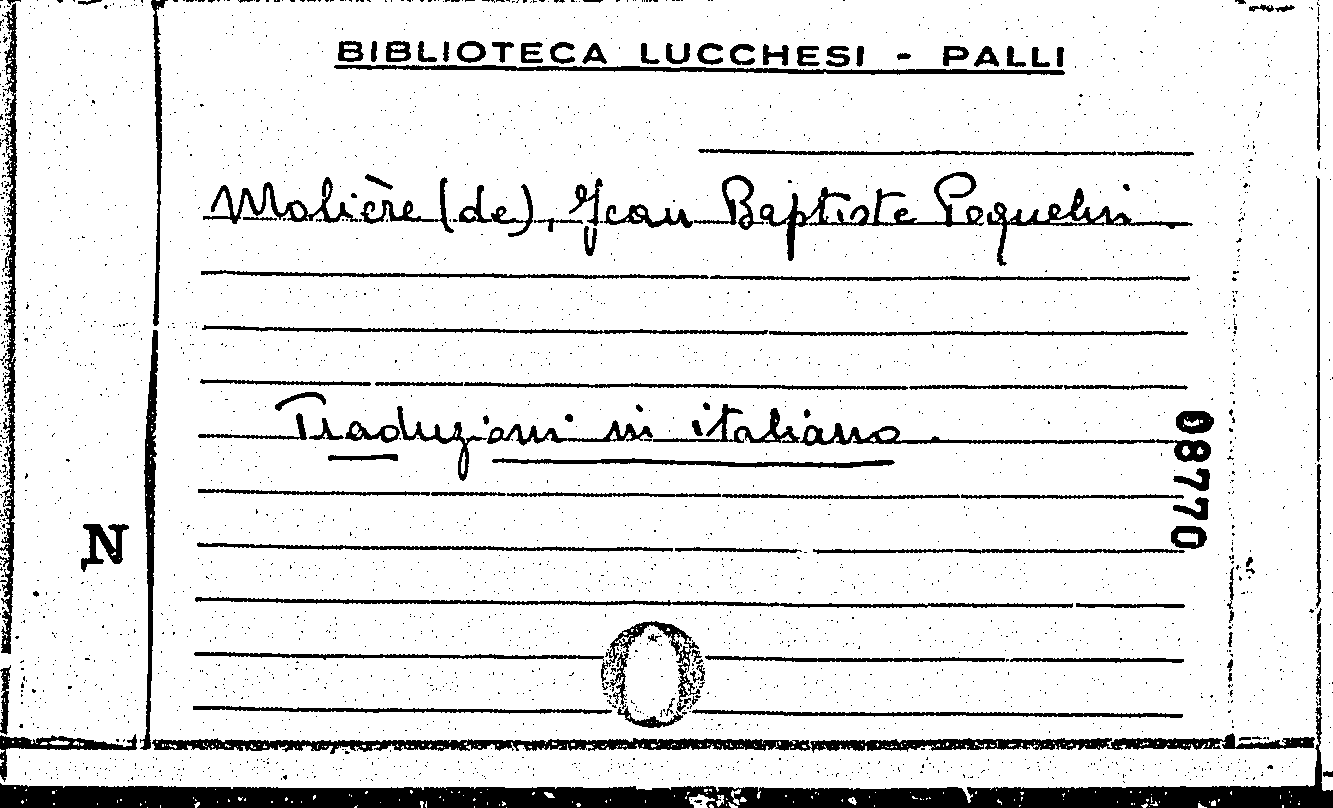 BIBLIOTECA LUCCHESI - PALLI
Molière (de), Jean Baptiste Poquelin
Traduzioni in italiano.
08770
N